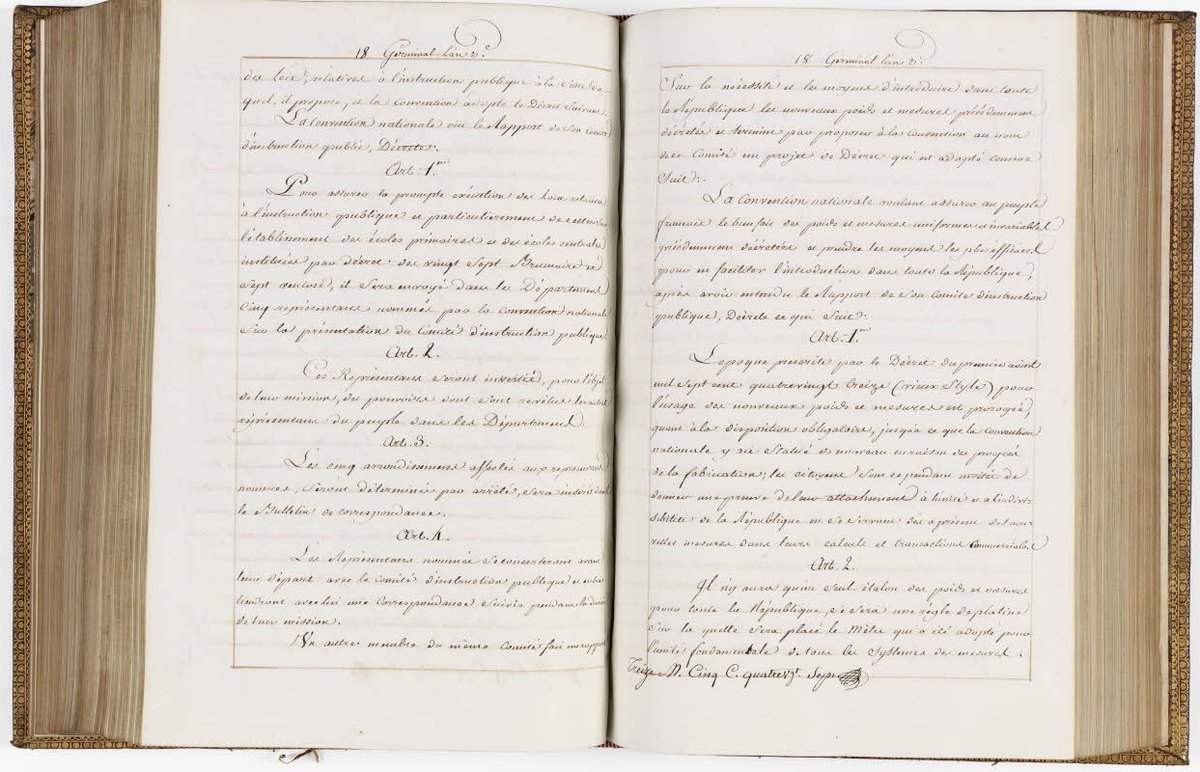 18 Germinal l'an 3.e
des loix relatives à l'instruction publique à la suite
quel, il propose, et la convention adopte le Décret Suivant.
La Convention nationale ouï le Rapport de son comité
d'instruction publiq, Décrete:
Art. 1.er
Pour assurer la prompte exécution des loix relatives
à l'instruction publique et particulierement de celles sur
l'établissement des écoles primaires et des écoles centrales
instituées par décret des vingt sept Brumaire et
sept ventose, il sera envoyé dans les Départemens
Cinq représentans nommés par la convention nationale
sur la présentation du Comité d'instruction publique.
Art. 2.
Ces Représentans seront investis, pour l'objet
de leur mission, des pouvoirs dont sont revêtus les autres
réprésentans du peuple dans les Départemens.
Art. 3.
Les cinq arrondissemens affectés aux représentans
nommés, seront déterminés par arrêté, sera inséré dans
le Bulletin de correspondance.
Art. 4.
Les Représentans nommés se concerteront avant
leur départ avec le comité d'instruction publique et entre
tiendront avec lui une correspondance suivie pendant la durée
de leur mission.
Un autre membre du même comité fait un rapport
18 Germinal l'an 3.e
Sur la nécessité et les moyens d'introduire dans toute
la République les nouveaux poids et mesures précédemment
décrétés et termine par proposer à la convention au nom
de ce Comité un projet de Décret qui est adopté comme
Suit:
La Convention nationale voulant assurer au peuple
français le bienfait des poids et mesures uniformes et invariables
précédemment décrétés et prendre les moyens les plus efficaces
pour en faciliter l'introduction dans toute la République,
après avoir entendu le Rapport de son Comité d'instruction
publique, Décrete ce qui suit:
Art. 1.er
L'époque prescrite par le Décret du premier août
mil sept cent quatrevingt treize (vieux style) pour
l'usage des nouveaux poids et mesures est prorogée,
quant à la disposition obligatoire, jusqu'à ce que la convention
nationale y ait statué de nouveau en raison des progrès
de la fabrication; les citoyens sont cependant invités de
donner une preuve de leur attachement à l'unité et à l'indivi-
sibilité de la République en se servant dès à présent des nou-
velles mesures dans leurs calculs et transactions commerciales
Art. 2.
Il n'y aura qu'un seul étalon des poids et mesures
pour toute la République, ce sera une règle de platine
sur la quelle sera placé le Mètre qui a été adopté pour
l'unité fondamentale de tous les systèmes des mesures.
Treize M. Cinq C. quatrevgt. Sept